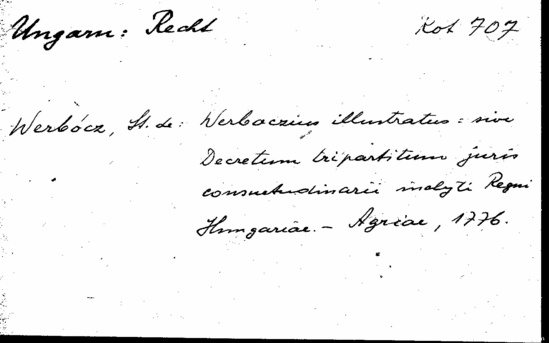 Ungarn: Recht Kot 707
Werbócz, St. de: Werboczius illustratus: sive
Decretum tripartitum juris
consuetudinarii inclyti Regni
Hungariae. – Agriae, 1776.